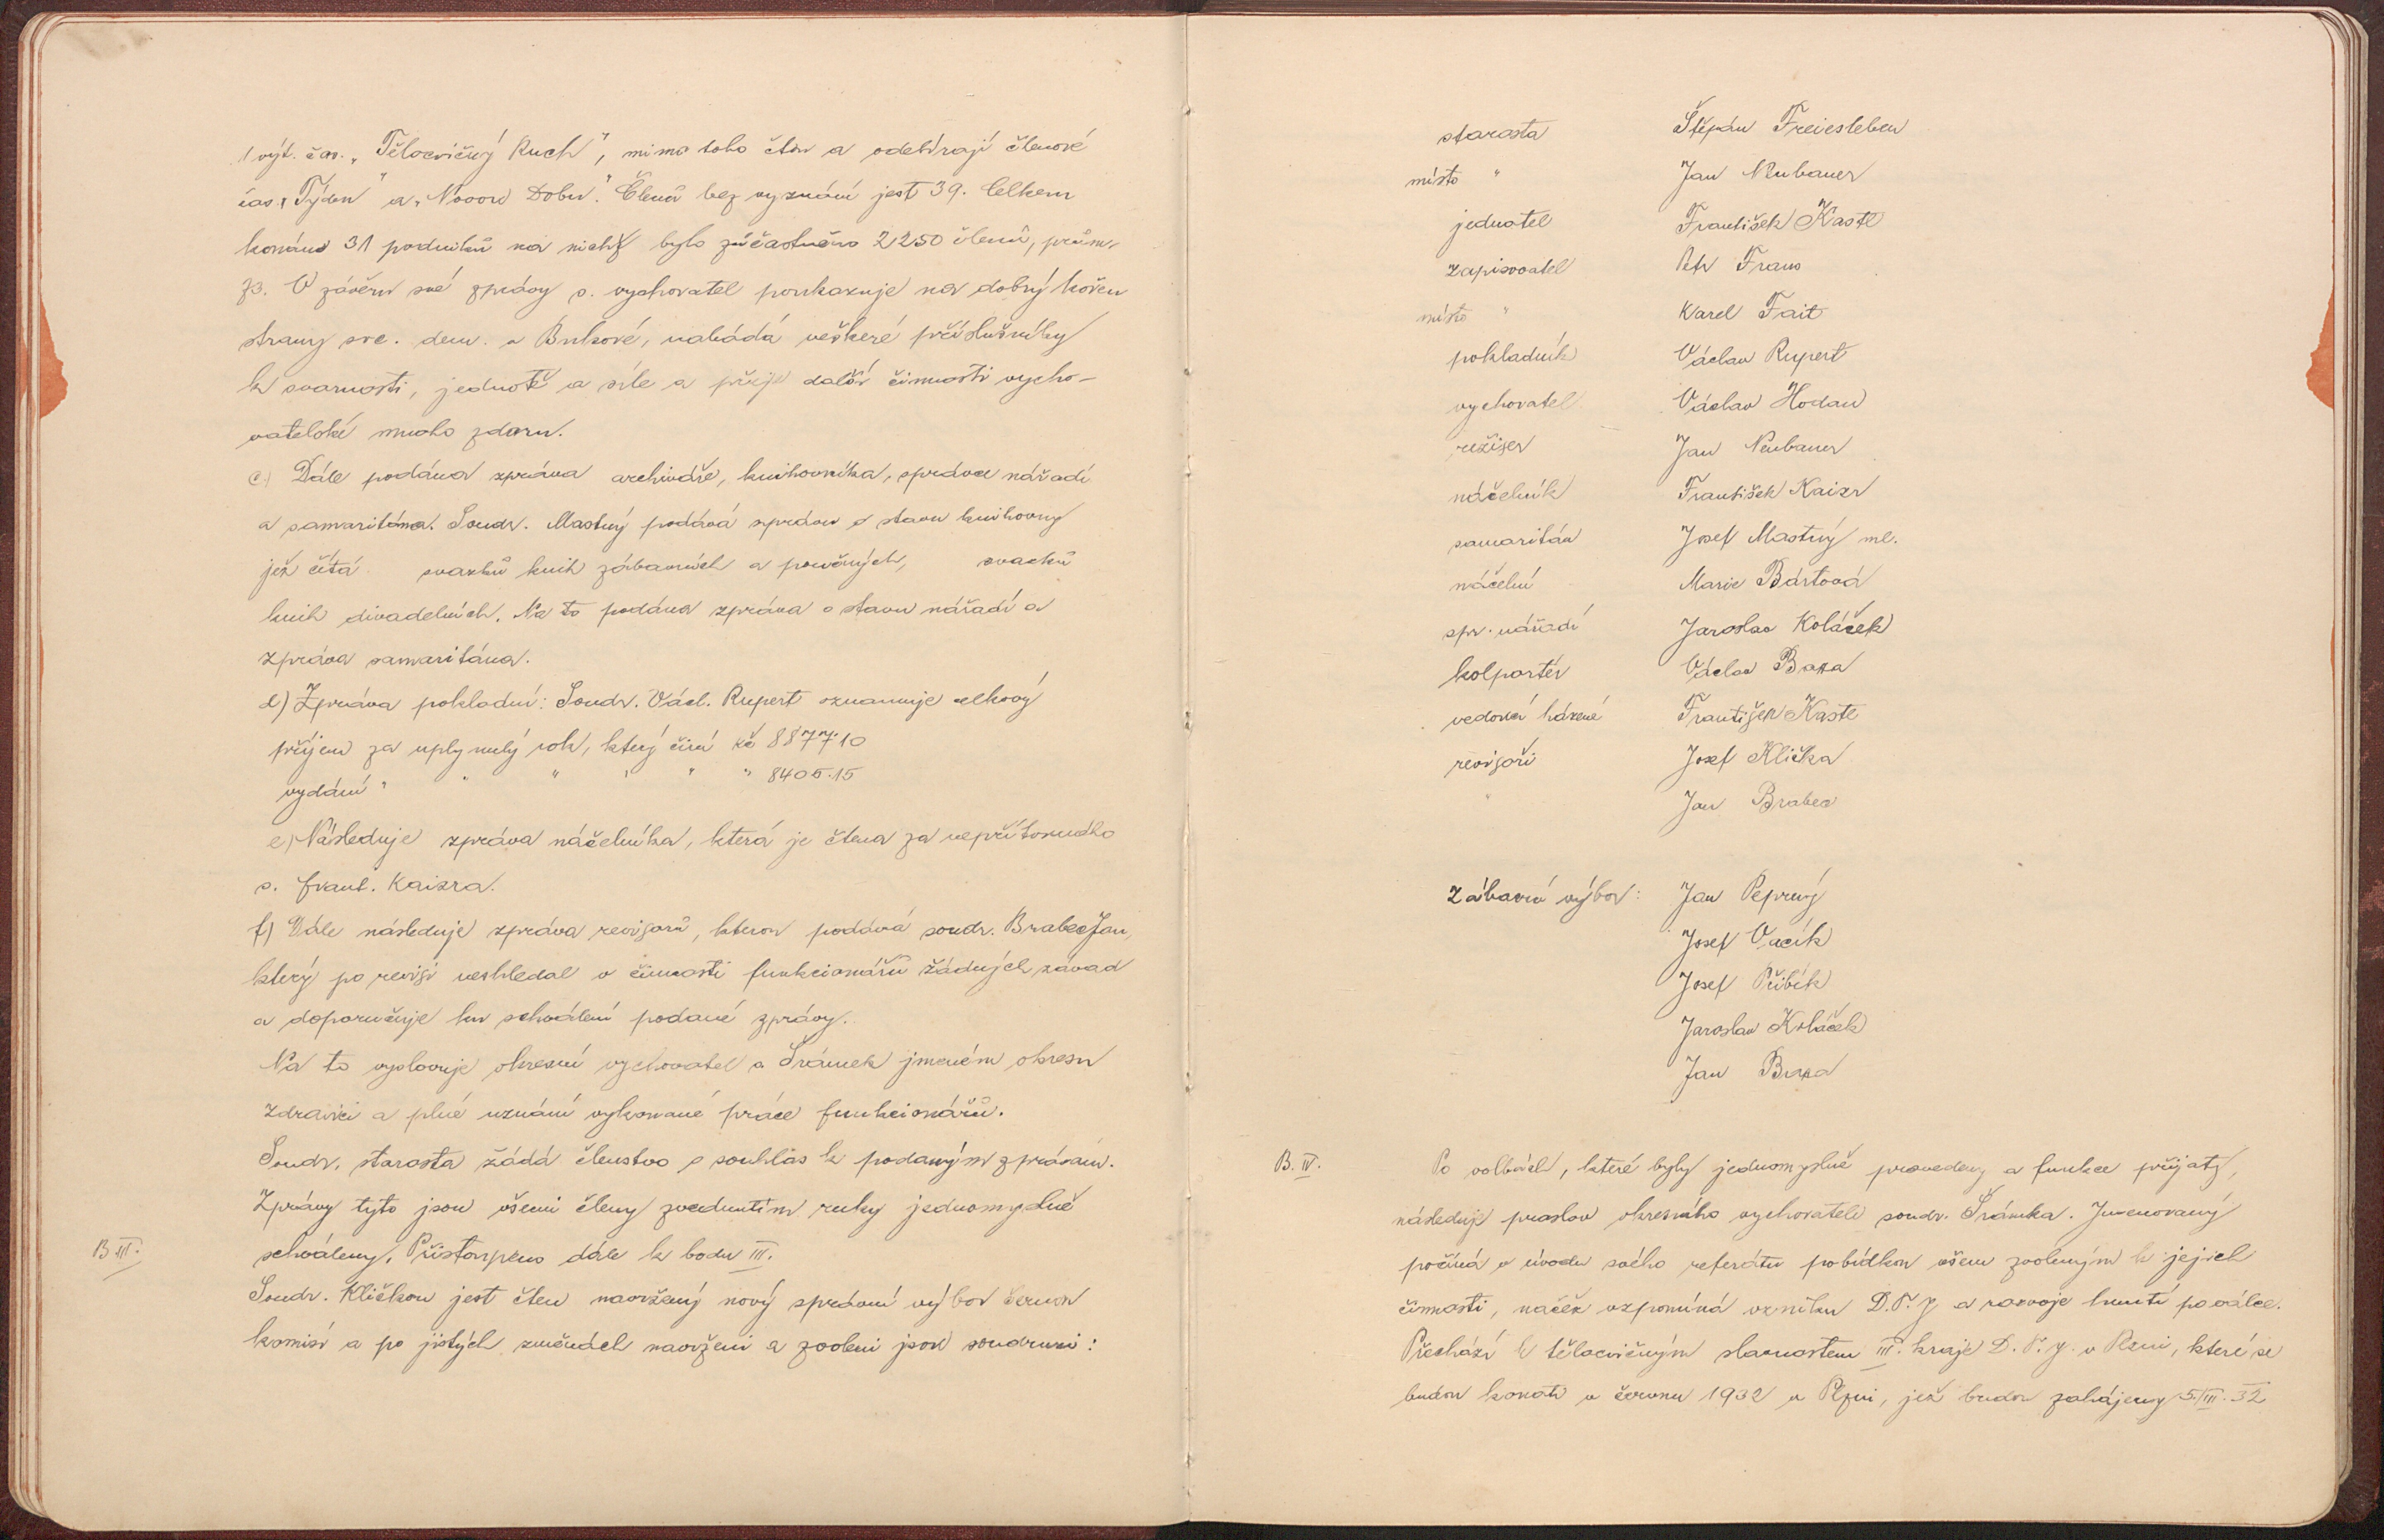 1 výt. čas. „Tělocvičný Ruch", mimo toho čtou a odebírají členové
čas. „Týden" a „Novou Dobu". Členů bez vyznání jest 39. Celkem
konáno 31 podniků na nichž bylo zúčastněno 2250 členů, prům.
73. V závěru své zprávy s. vychovatel poukazuje na dobrý kořen
strany soc. dem. v Bukové, nabádá veškeré příslušníky
k svornosti, jednotě a síle a přeje další činnosti vycho-
vatelské mnoho zdaru.
c) Dále podána zpráva archiváře, knihovníka, správce nářadí
a samaritána. Soudr. Mastný podává zprávu o stavu knihovny
jež čítá svazků knih zábavných a poučných, svazků
knih divadelních. Na to podána zpráva o stavu nářadí a
zpráva samaritána.
d) Zpráva pokladní: Soudr. Václ. Rupert oznamuje celkový
příjem za uplynulý rok, který činí Kč 8877.10
vydání " " " " " " 8405.15
e) Následuje zpráva náčelníka, která je čtena za nepřítomného
s. Frant. Kaizra.
f) Dále následuje zpráva revisorů, kterou podává soudr. Brabec Jan,
který po revisi neshledal v činnosti funkcionářů žádných závad
a doporučuje ku schválení podané zprávy.
Na to vyslovuje okresní vychovatel s Šrámek jménem okresu
zdravici a plné uznání vykonané práce funkcionářů.
Soudr. starosta žádá členstvo o souhlas k podaným zprávám.
Zprávy tyto jsou všemi členy zvednutím ruky jednomyslně
B III. schváleny. Přistoupeno dále k bodu III.
Soudr. Kličkou jest čten navržený nový správní výbor
komisí a po jistých změnách navrženi a zvoleni jsou soudruzi:
starosta Štěpán Freiesleben
místo " Jan Neubauer
jednatel František Kastl
zapisovatel Petr Franc
místo " Karel Fait
pokladník Václav Rupert
vychovatel Václav Hodan
režiser Jan Neubauer
náčelník František Kaizr
samaritán Josef Mastný ml.
náčelní Marie Bártová
spr. nářadí Jaroslav Koláček
kolportér Václav Baxa
vedoucí házené František Kastl
revisoři Josef Klička
" Jan Brabec
Zábavní výbor: Jan Peprný
Josef Vacík
Josef Přibík
Jaroslav Koláček
Jan Baxa
B. IV. Po volbách, které byly jednomyslně provedeny a funkce přijaty,
následuje proslov okresního vychovatele soudr. Šrámka. Jmenovaný
počíná v úvodu svého referátu pobídkou všem zvoleným k jejich
činnosti, načež vzpomíná vzniku D.T.J a rozvoje hnutí po válce.
Přechází k tělocvičným slavnostem III. kraje D.T.J. v Plzni, které se
budou konati v červnu 1932 v Plzni, jež budou zahájeny 5./III. 32